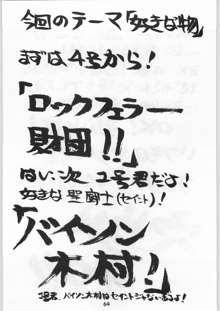 今回のテーマ「好きな物」
まずは4号から!
「ロックフェラー
財団!!」
はい次 1号君だよ!
好きな聖闘士(セイント)!
「バイソン
木村!」
1号君、バイソン木村はセイントじゃないぞよ!
64